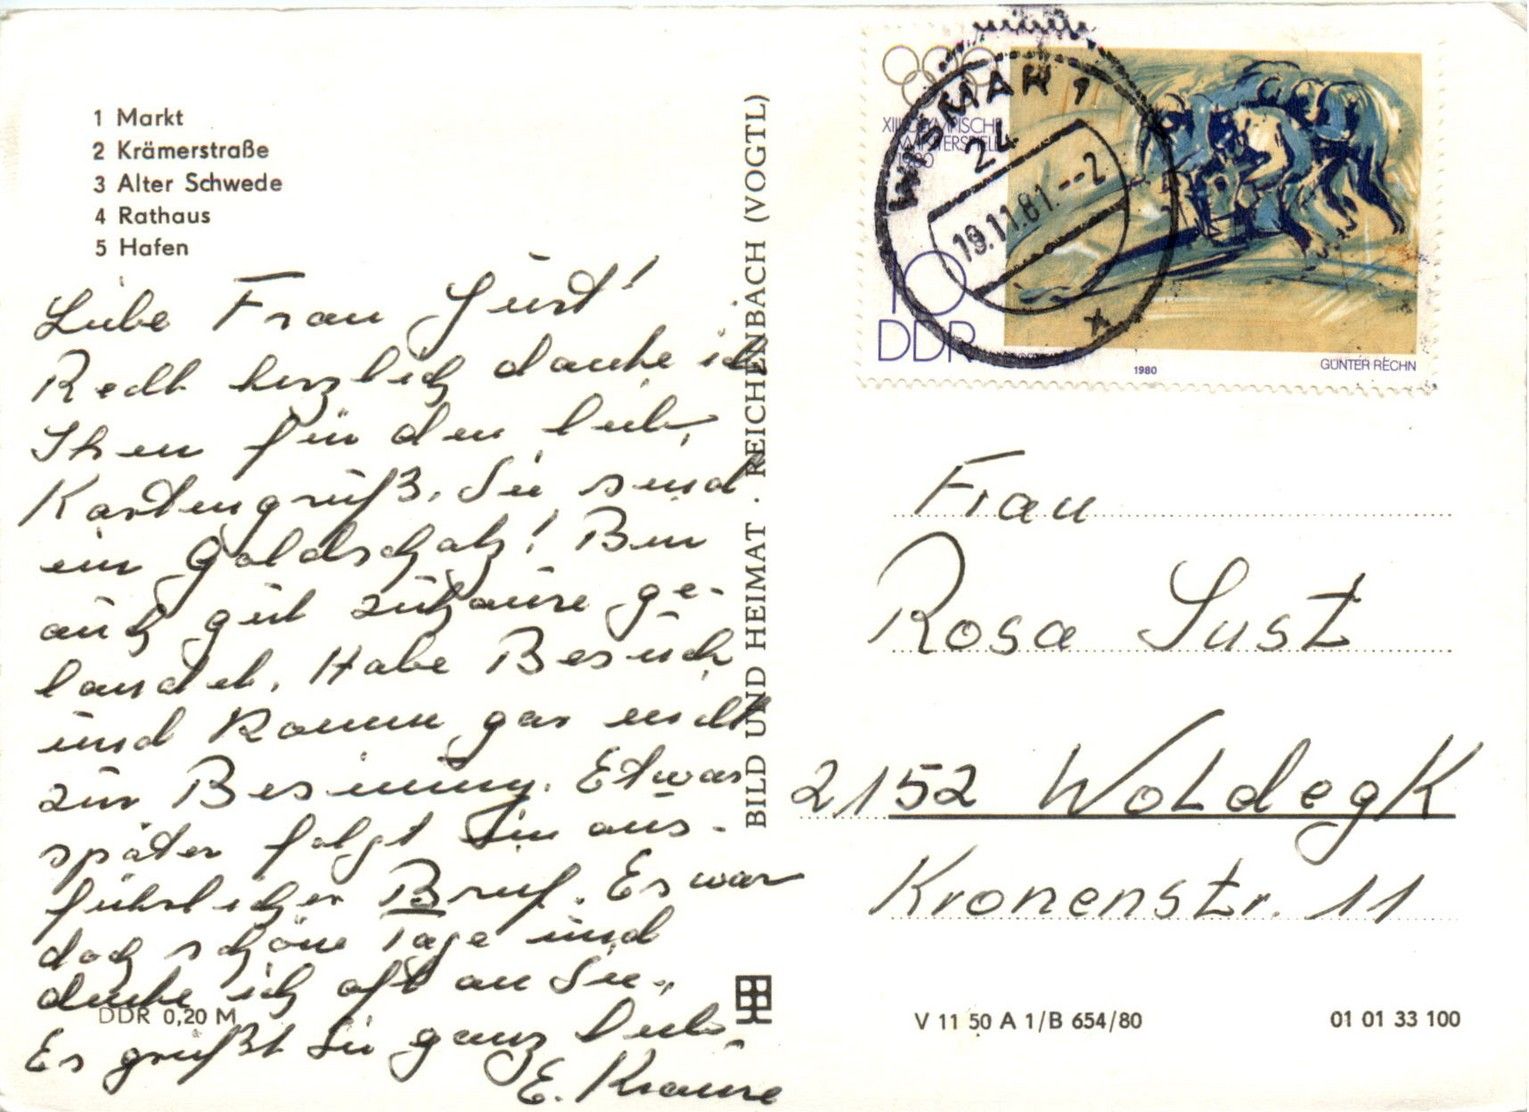 1 Markt
2 Krämerstraße
3 Alter Schwede
4 Rathaus
5 Hafen
Liebe Frau Sust!
Recht herzlich danke ich
Ihnen für den lieb.
Kartengruß. Sie sind
ein Goldschatz! Bin
auch gut zuhause ge-
landet. Habe Besuch
und komme gar nicht
zur Besinnung. Etwas
später folgt ein aus-
führlicher Brief. Es war
doch schöne Tage und
denke ich oft an Sie.
Es grüßt Sie ganz lieb
E. Krause
DDR 0,20 M
BILD UND HEIMAT · REICHENBACH (VOGTL)
XIII. OLYMPISCHE
WINTERSPIELE
1980
10
DDR
1980
GÜNTER RECHN
WISMAR 1
24
19.11.81.--2
x
Frau
Rosa Sust
2152 Woldegk
Kronenstr. 11
V 11 50 A 1/B 654/80
01 01 33 100